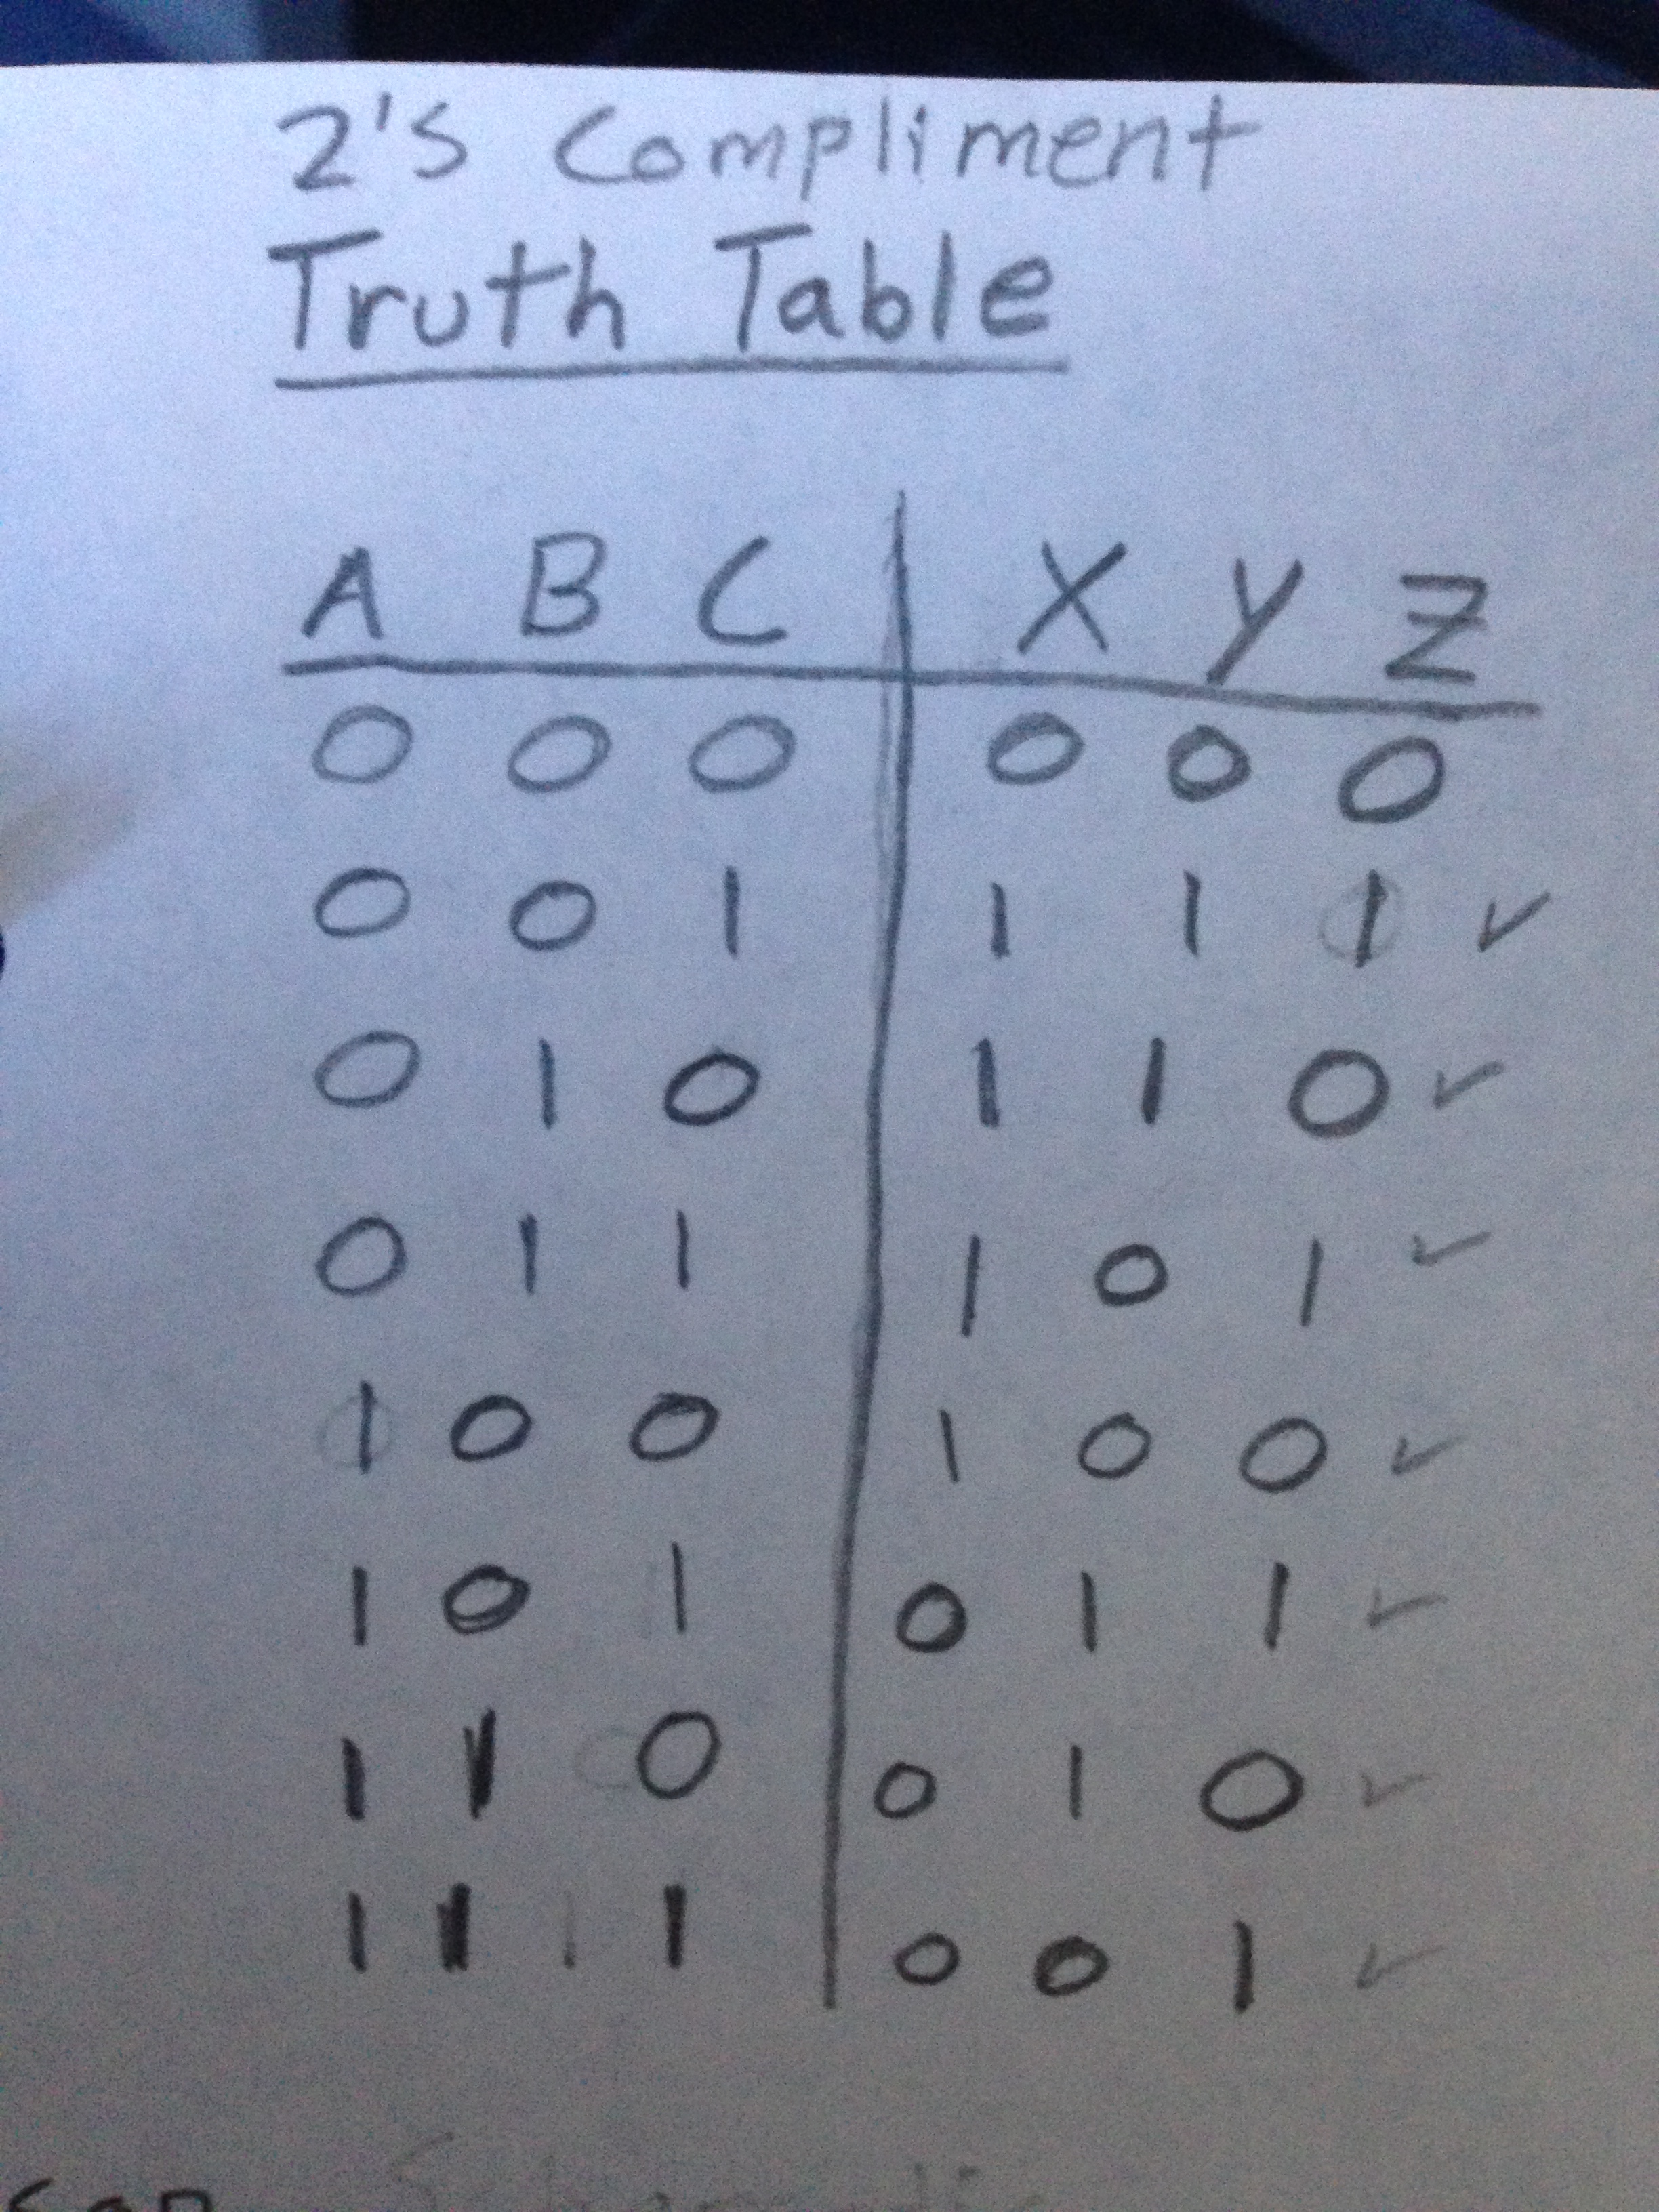 2's Compliment
Truth Table
A B C X Y Z
0 0 0 0 0 0
0 0 1 1 1 1 ✓
0 1 0 1 1 0 ✓
0 1 1 1 0 1 ✓
1 0 0 1 0 0 ✓
1 0 1 0 1 1 ✓
1 1 0 0 1 0 ✓
1 1 1 0 0 1 ✓